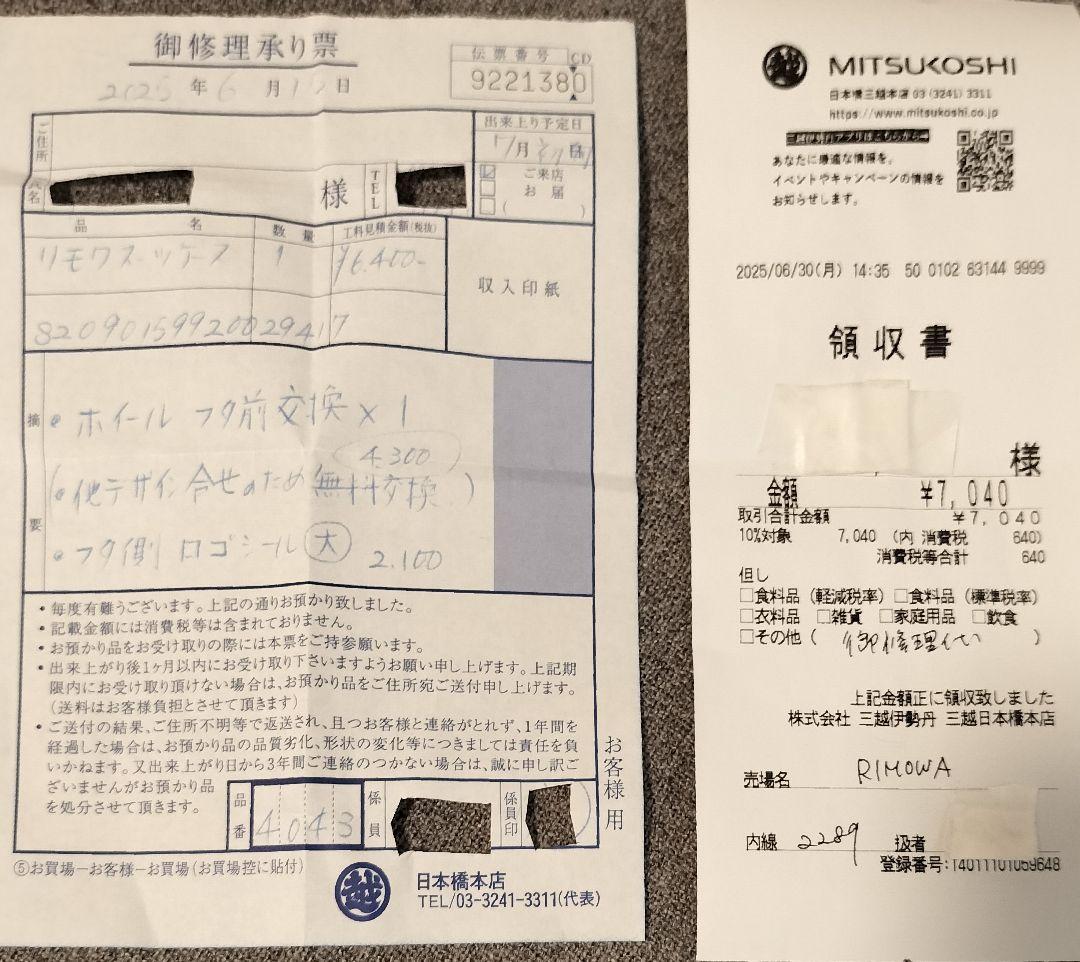 御修理承り票
2025年6月15日
伝票番号 CD
9221380
ご住所
出来上り予定日
7月
ご来店
お届
( )
氏名
様
TEL
品名
数量
工料見積金額(税抜)
リモワスーツケース
1
¥6,400-
収入印紙
82090159920029417
摘要
• ホイール フタ前交換 × 1
4,300
(• 他デザイン合せのため無料交換)
• フタ側 ロゴシール 大 2,100
• 毎度有難うございます。上記の通りお預かり致しました。
• 記載金額には消費税等は含まれておりません。
• お預かり品をお受け取りの際には本票をご持参願います。
• 出来上がり後1ヶ月以内にお受け取り下さいますようお願い申し上げます。上記期
限内にお受け取り頂けない場合は、お預かり品をご住所宛ご送付申し上げます。
(送料はお客様負担とさせて頂きます)
• ご送付の結果、ご住所不明等で返送され、且つお客様と連絡がとれず、1年間を
経過した場合は、お預かり品の品質劣化、形状の変化等につきましては責任を負
いかねます。又出来上がり日から3年間ご連絡のつかない場合は、誠に申し訳ご
ざいませんがお預かり品
を処分させて頂きます。
品番
4043
係員
係員印
お客様用
⑤お買場−お客様−お買場(お買場控に貼付)
越
日本橋本店
TEL/03-3241-3311(代表)
越
MITSUKOSHI
日本橋三越本店 03(3241)3311
https://www.mitsukoshi.co.jp
三越伊勢丹アプリはこちらから→
あなたに最適な情報を。
イベントやキャンペーンの情報を
お知らせします。
2025/06/30(月) 14:35 50 0102 63144 9999
領収書
様
金額 ¥7,040
取引合計金額 ¥7,040
10%対象 7,040 (内 消費税 640)
消費税等合計 640
但し
□食料品(軽減税率) □食料品(標準税率)
□衣料品 □雑貨 □家庭用品 □飲食
□その他( 御修理代 )
上記金額正に領収致しました
株式会社 三越伊勢丹 三越日本橋本店
売場名 RIMOWA
内線 2289 扱者
登録番号:T4011101069648